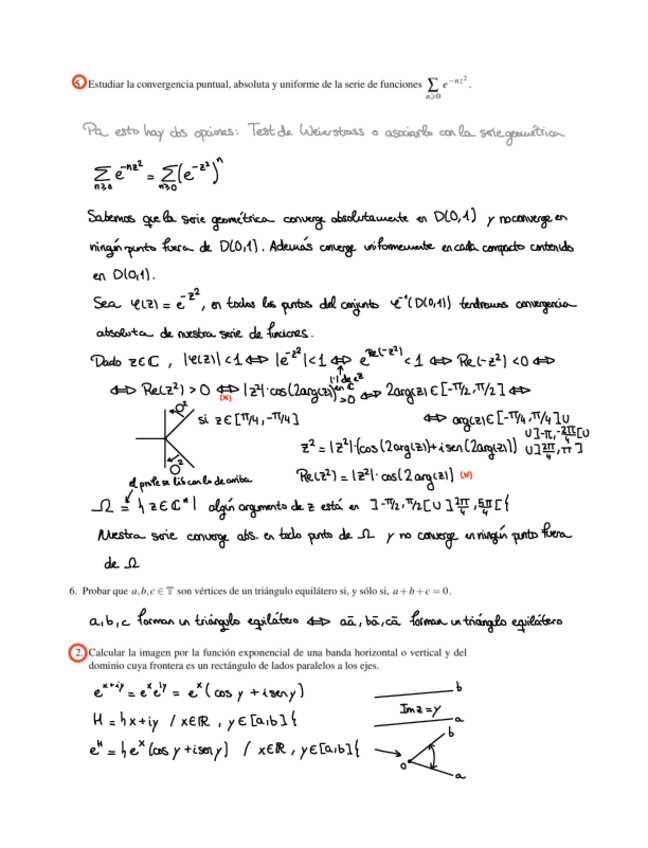 5. Estudiar la convergencia puntual, absoluta y uniforme de la serie de funciones ∑ e^{-nz²}.
n⩾0
Pa esto hay dos opciones: Test de Weierstrass o asociarlo con la serie geométrica
∑_{n≥0} e^{-nz²} = ∑_{n≥0} (e^{-z²})^n
Sabemos que la serie geométrica converge absolutamente en D(0,1) y no converge en
ningún punto fuera de D(0,1). Además converge uniformemente en cada compacto contenido
en D(0,1).
Sea φ(z) = e^{-z²}, en todos los puntos del conjunto φ^{-1}(D(0,1)) tendremos convergencia
absoluta de nuestra serie de funciones.
Dado z∈ℂ, |φ(z)|<1 ⇔ |e^{-z²}|<1 ⇔ e^{Re(-z²)}<1 ⇔ Re(-z²)<0 ⇔
|·| de e^z en ℂ
⇔ Re(z²)>0 ⇔ |z²|·cos(2arg(z))>0 ⇔ 2arg(z)∈[-π/2,π/2] ⇔
(*)
si z∈[π/4,-π/4]
⇔ arg(z)∈[-π/4,π/4]∪
∪]-π,-2π/4[∪
z² = |z²|·(cos(2arg(z))+isen(2arg(z))) ∪]2π/4,π]
el profe se lió con lo de arriba
Re(z²) = |z²|·cos(2arg(z)) (*)
Ω = {z∈ℂ*| algún argumento de z está en ]-π/2,π/2[∪]2π/4,5π/4[{
Nuestra serie converge abs. en todo punto de Ω y no converge en ningún punto fuera
de Ω
6. Probar que a,b,c ∈ 𝕋 son vértices de un triángulo equilátero si, y sólo si, a+b+c = 0.
a,b,c forman un triángulo equilátero ⇔ aā, bā, cā forman un triánglo equilátero
2. Calcular la imagen por la función exponencial de una banda horizontal o vertical y del
dominio cuya frontera es un rectángulo de lados paralelos a los ejes.
e^{x+iy} = e^x e^{iy} = e^x (cos y + isen y)
b
H = {x+iy / x∈ℝ, y∈[a,b]{
Im z = y
a
e^H = {e^x (cos y + isen y) / x∈ℝ, y∈[a,b]{
b
0
a